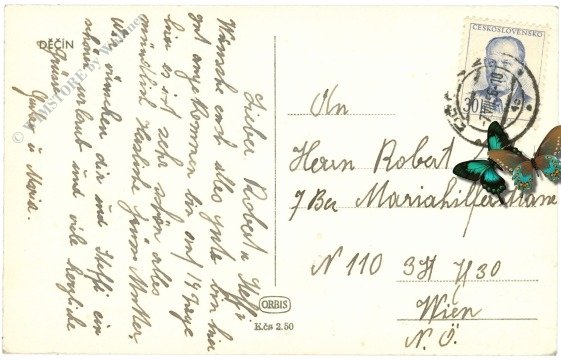 DĚČÍN
Lieber Robert u Steffi
Wünsche euch alles gute bin hier
gut angekommen bin auf 14 Tage
hier es ist sehr schön alles
mündlich Herzliche Grüsse Mutter
Wir wünschen dir und Steffi ein
schön urlaub und viele herzliche
Grüsse
u Maria.
ČESKOSLOVENSKO
30
An
Herrn Robert
7 Bez Mariahilfer
N 110 3 St
Wien
N. Ö.
ORBIS
Kčs 2.50